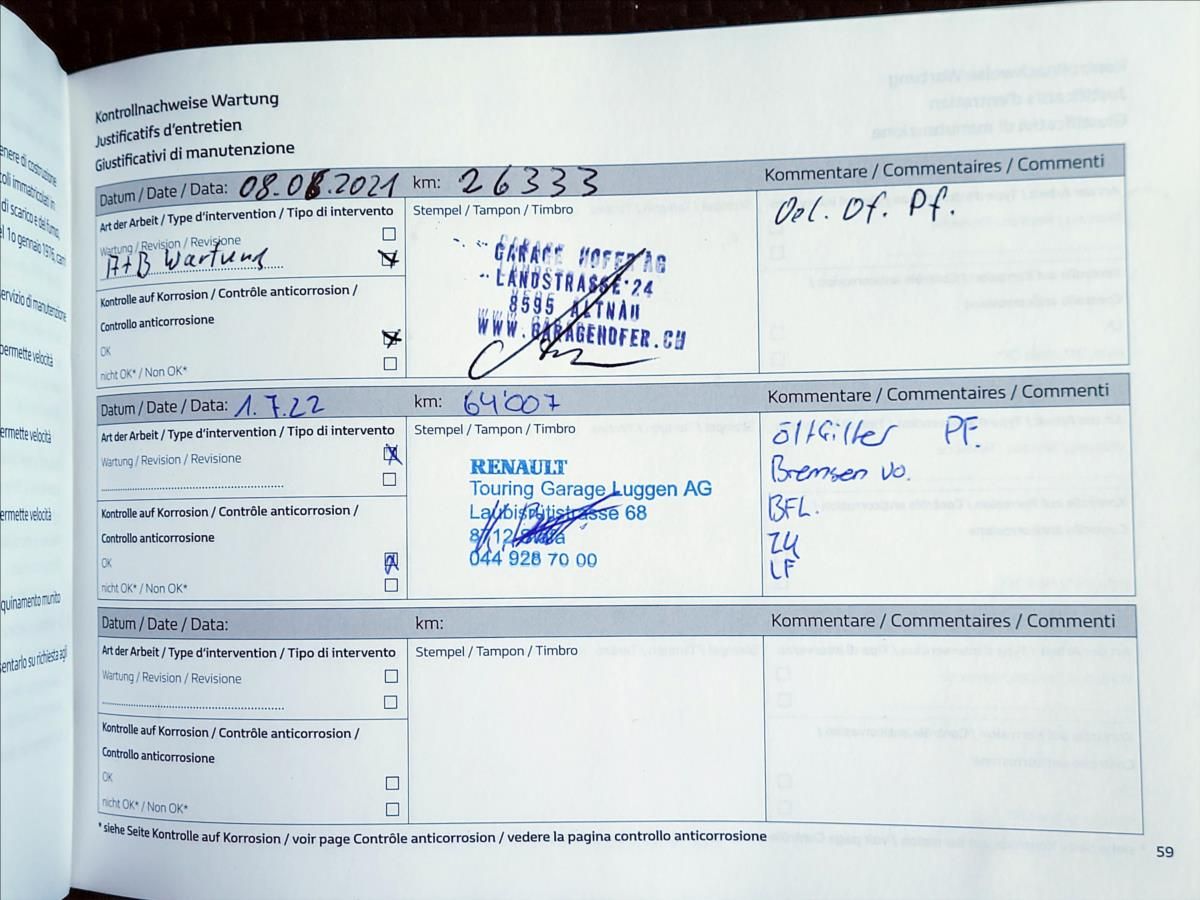 enere di costruzione
oli immatricolati in
di scarico e del fumo,
el 1o gennaio 1976, carri
ervizio di manutenzione
permette velocità
ermette velocità
ermette velocità
quinamento munito
sentarlo su richiesta agli
Kontrollnachweise Wartung
Justificatifs d'entretien
Giustificativi di manutenzione
Datum / Date / Data: 2021 km: 26333 Kommentare / Commentaires / Commenti
Art der Arbeit / Type d'intervention / Tipo di intervento
Wartung / Revision / Revisione
A+B Wartung
Kontrolle auf Korrosion / Contrôle anticorrosion /
Controllo anticorrosione
OK
nicht OK* / Non OK*
Stempel / Tampon / Timbro
GARAGE HOFER AG
LANDSTRASSE 24
8595 ALTNAU
WWW.GARAGEHOFER.CH
Oel. Of. Pf.
Datum / Date / Data: 1.7.22 km: 64'007 Kommentare / Commentaires / Commenti
Art der Arbeit / Type d'intervention / Tipo di intervento
Wartung / Revision / Revisione
Kontrolle auf Korrosion / Contrôle anticorrosion /
Controllo anticorrosione
OK
nicht OK* / Non OK*
Stempel / Tampon / Timbro
RENAULT
Touring Garage Luggen AG
Laubisrütistrasse 68
8712
044 928 70 00
öl+filter PF.
Bremsen vo.
BFL.
ZK
LF
Datum / Date / Data: km: Kommentare / Commentaires / Commenti
Art der Arbeit / Type d'intervention / Tipo di intervento
Wartung / Revision / Revisione
Kontrolle auf Korrosion / Contrôle anticorrosion /
Controllo anticorrosione
OK
nicht OK* / Non OK*
Stempel / Tampon / Timbro
* siehe Seite Kontrolle auf Korrosion / voir page Contrôle anticorrosion / vedere la pagina controllo anticorrosione
59